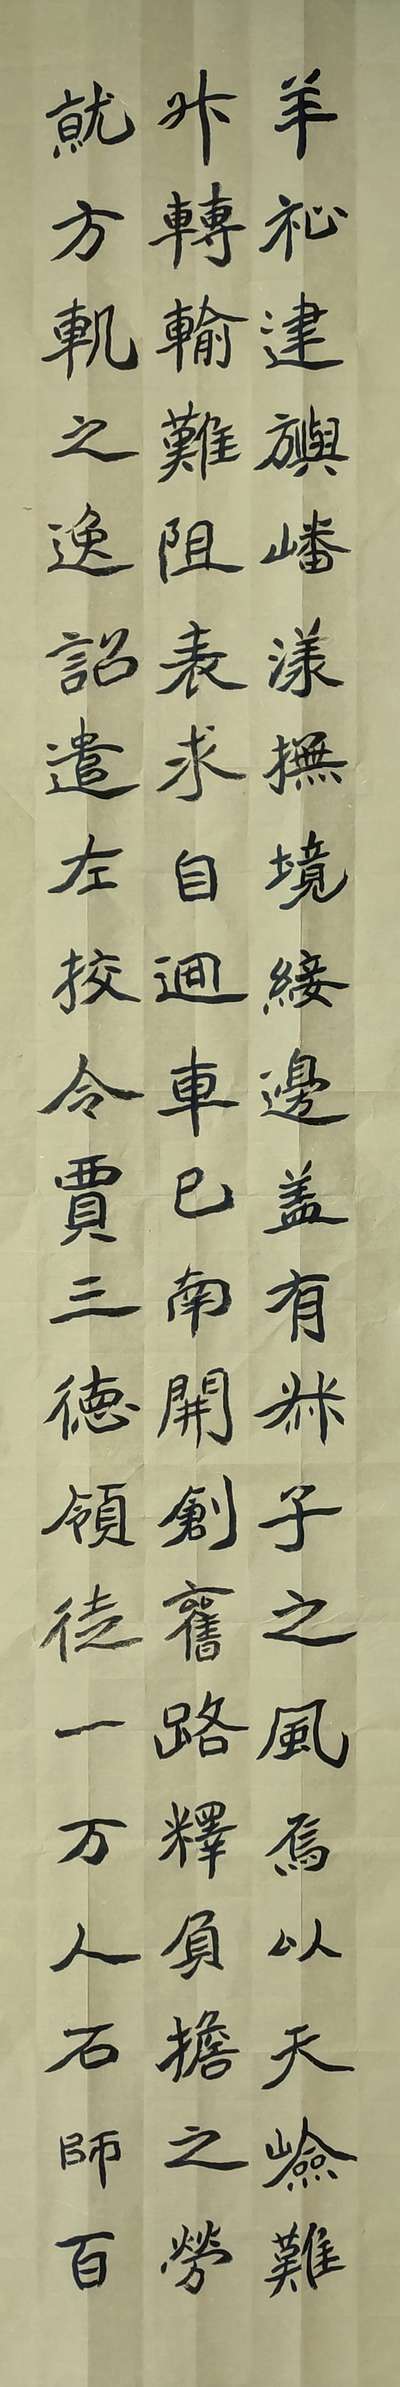 羊祉建旟嶓漾撫境綏邊盖有叔子之風焉以天嶮難
升轉輸難阻表求自迴車已南開創舊路釋負擔之勞
就方軌之逸詔遣左挍令賈三德領徒一万人石師百